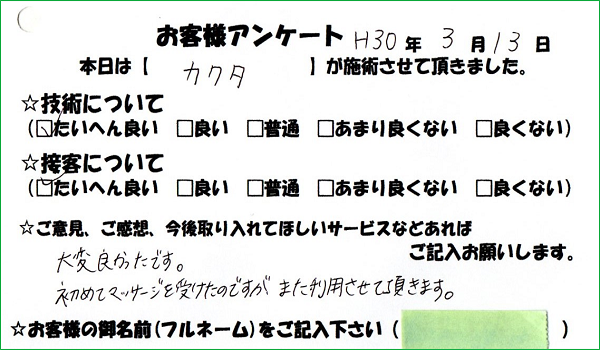 お客様アンケート H30年 3月13日
本日は【 カクタ 】が施術させて頂きました。
☆技術について
(☑たいへん良い □良い □普通 □あまり良くない □良くない)
☆接客について
(☑たいへん良い □良い □普通 □あまり良くない □良くない)
☆ご意見、ご感想、今後取り入れてほしいサービスなどあれば
ご記入お願いします。
大変良かったです。
初めてマッサージを受けたのですが また利用させて頂きます。
☆お客様の御名前(フルネーム)をご記入下さい( )